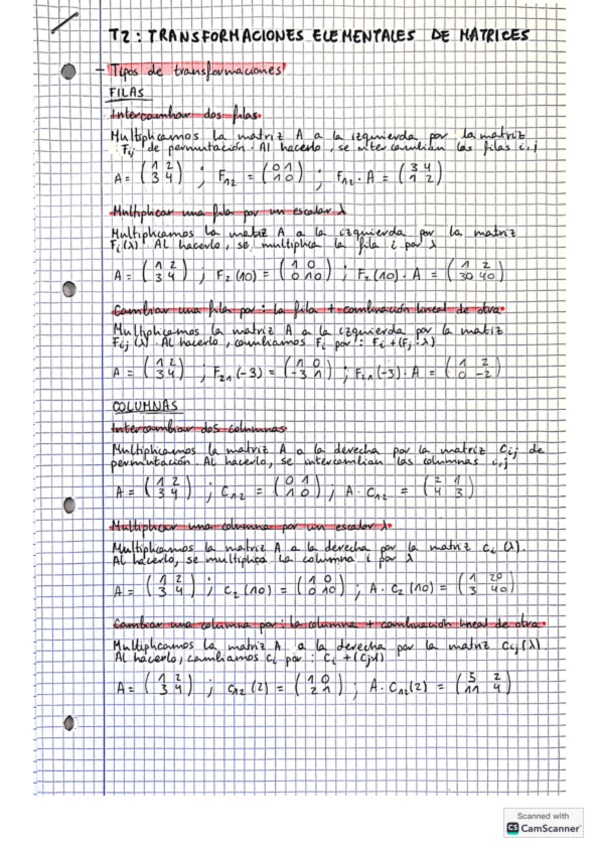 T2: TRANSFORMACIONES ELEMENTALES DE MATRICES
- Tipos de transformaciones
FILAS
Intercambiar dos filas.
Multiplicamos la matriz A a la izquierda por la matriz
Fij de permutación. Al hacerlo, se intercambian las filas i,j
A = (1 2 / 3 4) ; F12 = (0 1 / 1 0) ; F12 · A = (3 4 / 1 2)
Multiplicar una fila por un escalar λ
Multiplicamos la matriz A a la izquierda por la matriz
Fi(λ). Al hacerlo, se multiplica la fila i por λ
A = (1 2 / 3 4) ; F2(10) = (1 0 / 0 10) ; F2(10) · A = (1 2 / 30 40)
Cambiar una fila por: la fila + combinación lineal de otra.
Multiplicamos la matriz A a la izquierda por la matriz
Fij(λ). Al hacerlo, cambiamos Fi por: Fi + (Fj·λ)
A = (1 2 / 3 4) ; F21(-3) = (1 0 / -3 1) ; F21(-3) · A = (1 2 / 0 -2)
COLUMNAS
Intercambiar dos columnas
Multiplicamos la matriz A a la derecha por la matriz Cij de
permutación. Al hacerlo, se intercambian las columnas i,j
A = (1 2 / 3 4) ; C12 = (0 1 / 1 0) ; A · C12 = (2 1 / 4 3)
Multiplicar una columna por un escalar λ.
Multiplicamos la matriz A a la derecha por la matriz Ci(λ).
Al hacerlo, se multiplica la columna i por λ
A = (1 2 / 3 4) ; C2(10) = (1 0 / 0 10) ; A · C2(10) = (1 20 / 3 40)
Cambiar una columna por: la columna + combinación lineal de otra.
Multiplicamos la matriz A a la derecha por la matriz Cij(λ)
Al hacerlo, cambiamos Ci por: Ci + (Cjλ)
A = (1 2 / 3 4) ; C12(2) = (1 0 / 2 1) ; A · C12(2) = (5 2 / 11 4)
Scanned with
CS CamScanner